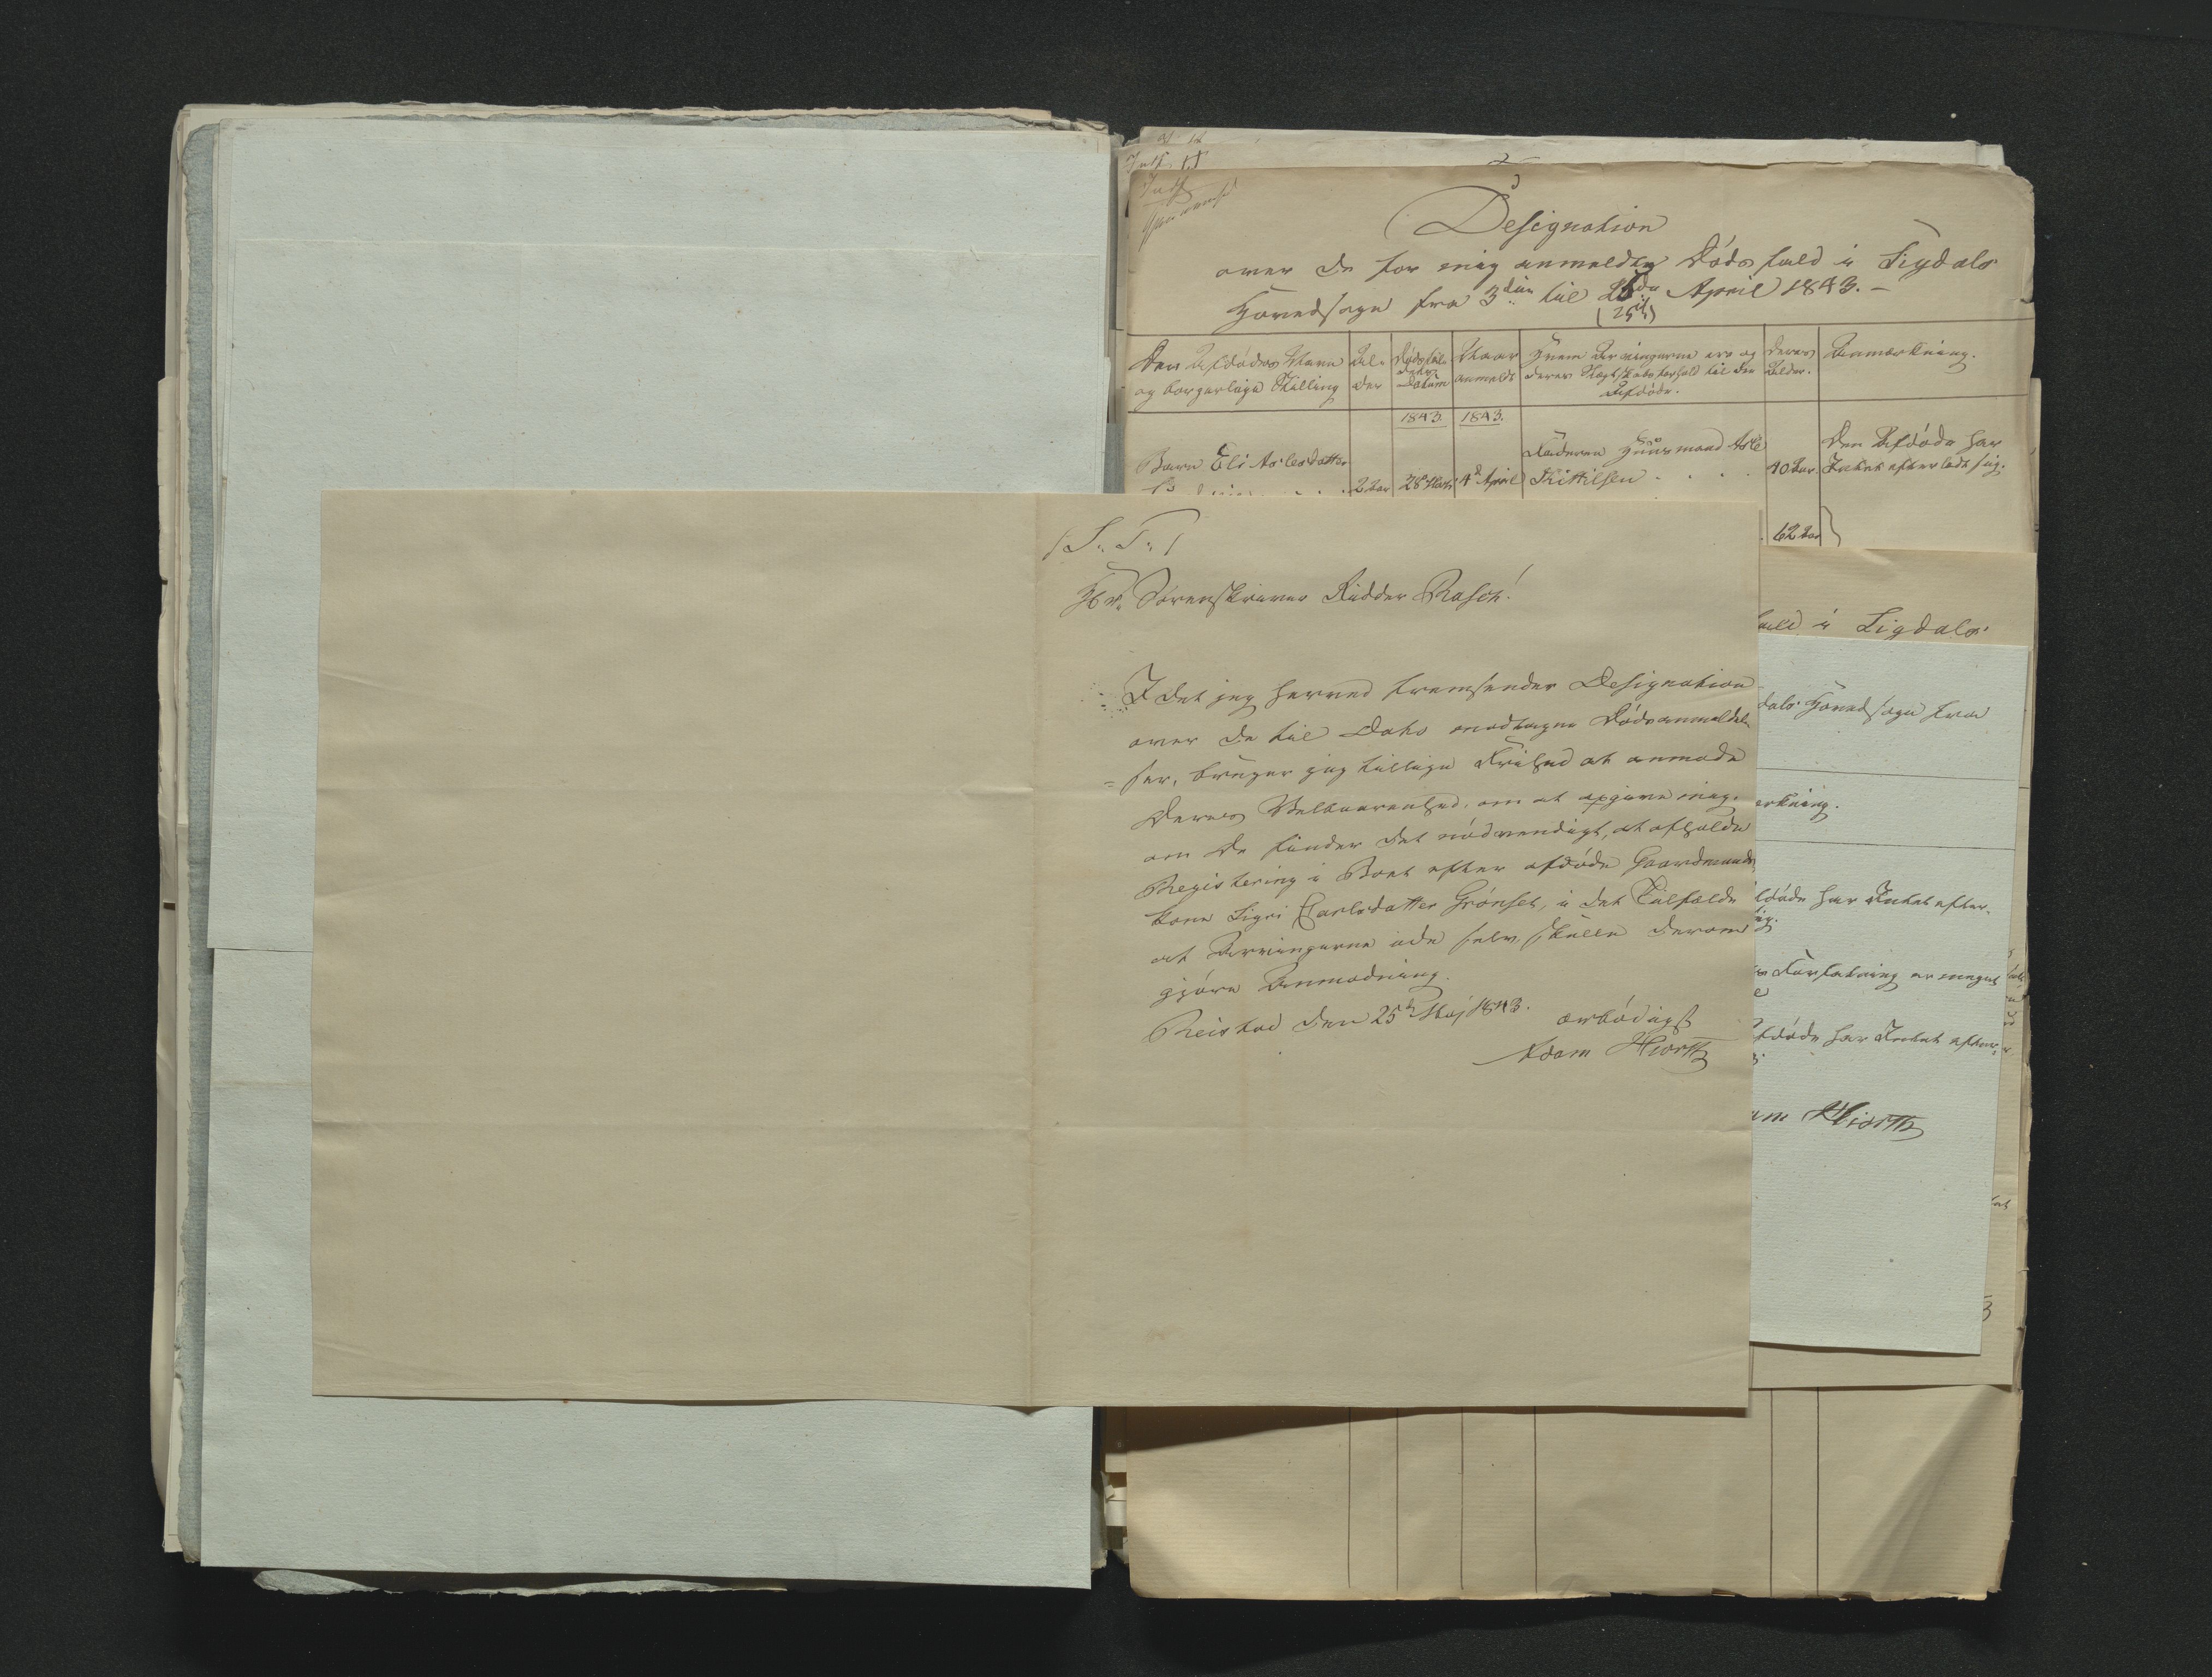 Designation
over de for mig anmeldte Dødsfald i Sigdals
Hovedsogn fra 3die til April 1843.-
(25de)
Den Afdødes Navn
og borgerlige Stilling
Al-
der
Dødsfal-
dets
Datum
Naar
anmeldt
Hvem Arvingerne ere og
deres Slægtskabsforhold til den
Afdøde.
Deres
Alder.
Anmærkning.
1843. 1843.
Barn Eli Asles datter
2 Aar 28 Marts 4de April
Faderen Huusmand Asle
Kittilsen
40 Aar.
Den Afdøde har
Intet efterladt sig.
62 Aar
/S: T:/
Hr. Sorenskriver Ridder Rasch!
Idet jeg herved fremsender Designation
over de til Dato modtagne Dødsanmeldel-
=ser, bruger jeg tillige Frihed at anmode
Deres Velbaarenhed, om at opgive mig,
om De finder det nødvendigt, at afholde
Registering i Boet efter afdøde Gaardmands
kone Sigri Carlsdatter Grønset, i det Tilfælde
at Arvingerne ikke selv skulle derom
gjøre Anmodning.
Reistad den 25de Maj 1843.
ærbødigst
Adam Hiorth
fald i Sigdals
dals Hovedsogn fra
ærkning.
fdøde har Intet efter-
sig.
s Forfatning er meget
fdøde har Intet efter-
am Hiorth